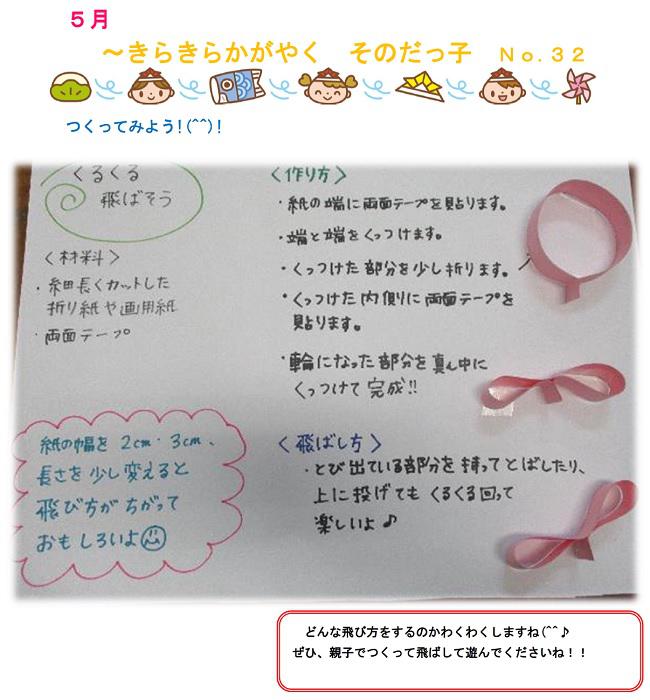 5月
～きらきらかがやく　そのだっ子　No.32
つくってみよう!(^^)!
くるくる
飛ばそう
〈材料〉
・細長くカットした
折り紙や画用紙
・両面テープ
紙の幅を 2cm・3cm、
長さを少し変えると
飛び方がちがって
おもしろいよ
〈作り方〉
・紙の端に両面テープを貼ります。
・端と端をくっつけます。
・くっつけた部分を少し折ります。
・くっつけた内側に両面テープを
貼ります。
・輪になった部分を真ん中に
くっつけて完成!!
〈飛ばし方〉
・とび出ている部分を持ってとばしたり、
上に投げてもくるくる回って
楽しいよ♪
どんな飛び方をするのかわくわくしますね(^^♪
ぜひ、親子でつくって飛ばして遊んでくださいね！！